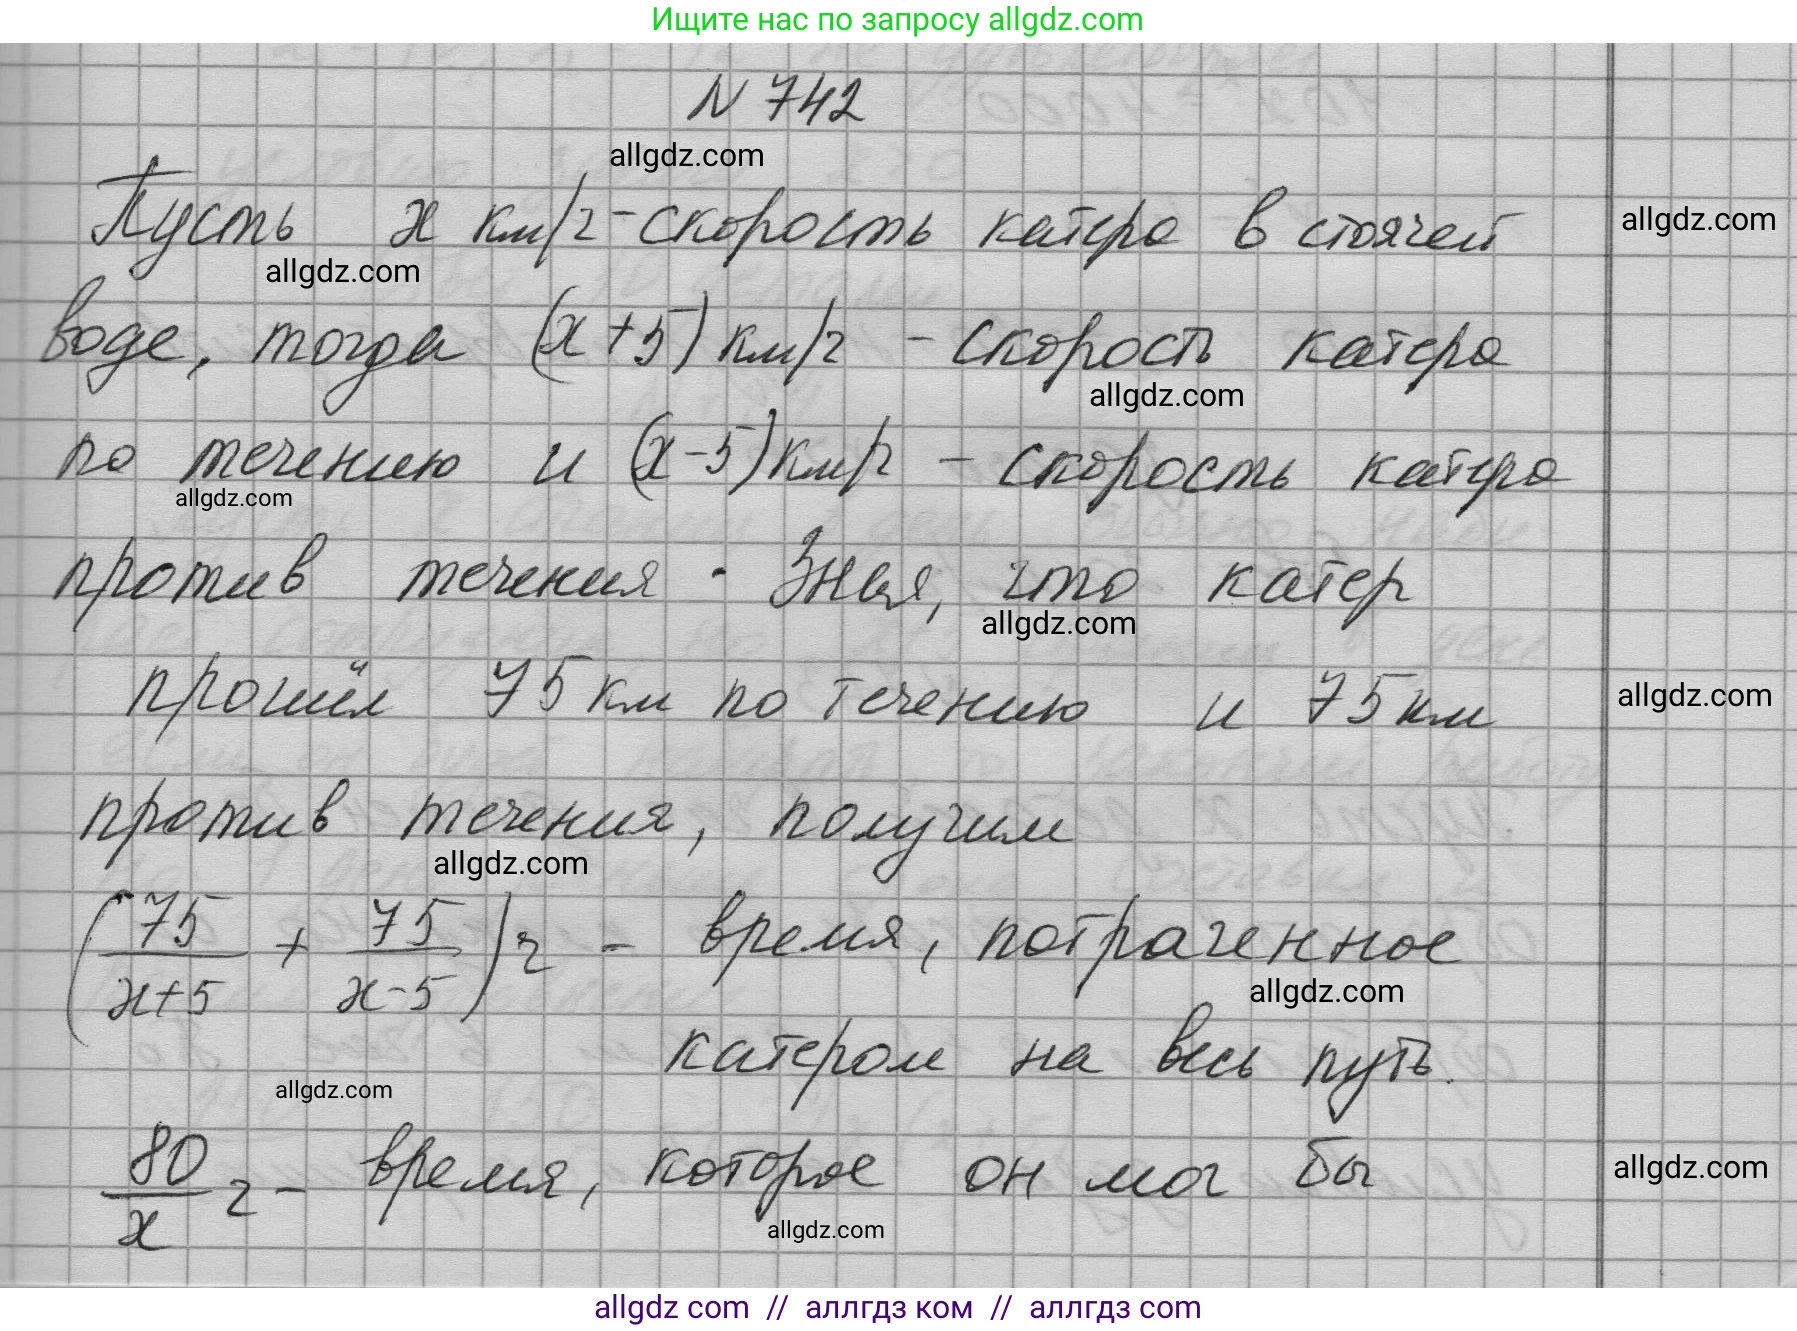 Ищите нас по запросу allgdz.com
N 742
allgdz.com
Пусть x км/ч - скорость катера в стоячей
allgdz.com
allgdz.com
воде, тогда (x+5) км/ч - скорость катера
allgdz.com
по течению и (x-5) км/ч - скорость катера
allgdz.com
против течения. Зная, что катер
allgdz.com
прошёл 75 км по течению и 75 км
allgdz.com
против течения, получим
allgdz.com
(75/(x+5) + 75/(x-5)) ч - время, потраченное
allgdz.com
катером на весь путь.
allgdz.com
80/x ч - время, которое он мог бы
allgdz.com
allgdz.com
allgdz com // аллгдз ком // аллгдз com